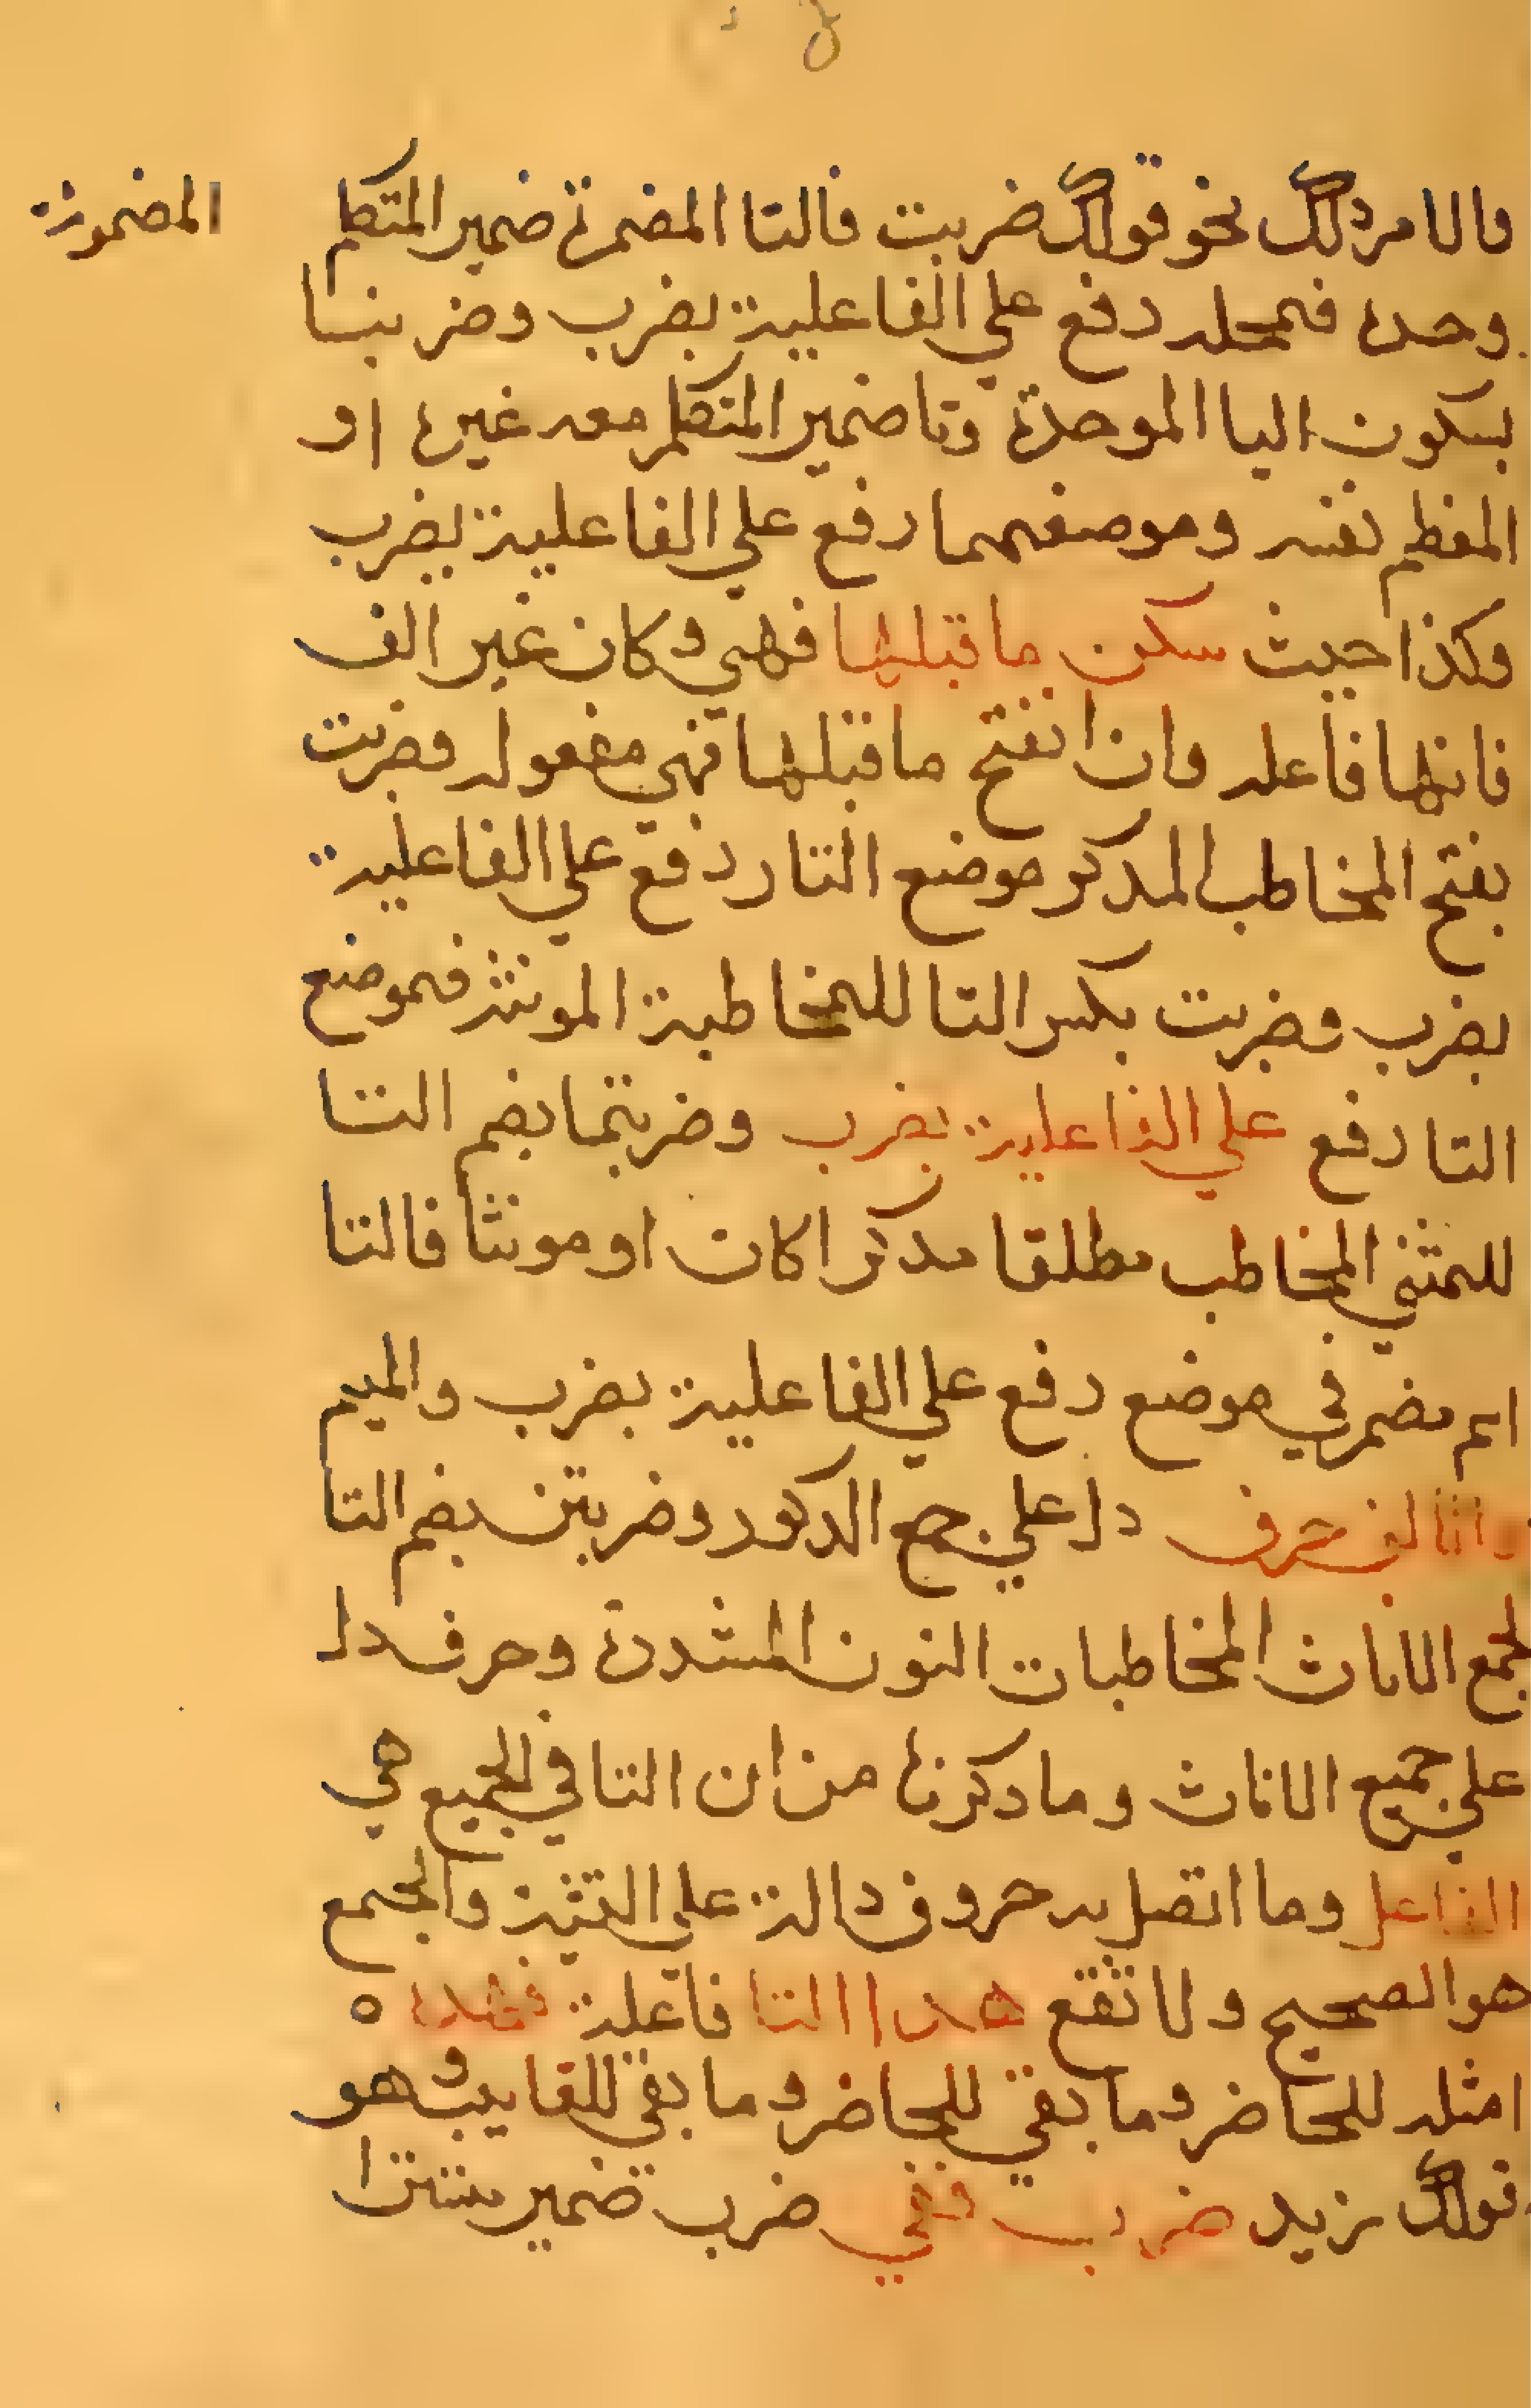 فالامر دلك نحو قولك ضربت فالتا المضمرة ضمير المتكلم
المضمومة
وحده فمحله رفع علي الفاعلية بضرب وضربنا
بسكون البا الموحدة ونا ضمير المتكلم معه غيره او
المعظم نفسه وموضعهما رفع علي الفاعلية بضرب
وكذا حيث سكن ما قبلها فهي وكان غير الف
فانها فاعله وان انفتح ما قبلها فهي مفعوله وضربت
بفتح المخاطب المدكر موضع التا رفع علي الفاعلية
بضرب وضربت بكسر التا للمخاطبة المونثه فموضع
التا رفع علي الفاعلية بضرب وضربتما بضم التا
للمثني المخاطب مطلقا مدكرا كان او مونثا فالتا
اسم مضمر في موضع رفع علي الفاعلية بضرب والميم
حرف دل علي جمع الدكور وضربتن بضم التا
لجمع الاناث المخاطبات النون المشددة وحرف دل
علي جميع الاناث وما دكرنا من ان التا في الجميع هي
الفاعل وما اتصل به حروف دالة علي التثنية والجمع
هو الصحيح ولا تقع هدا التا فاعلة
امثله للحاضر وما بقي للحاضر وما بقي للغايب وهو
قولك زيد ضرب ففي ضرب ضمير مستترا